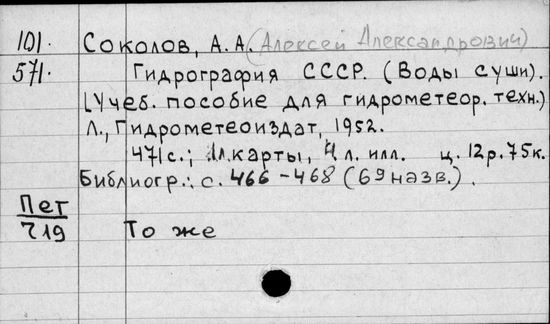 101. Соколов, А. А. (Алексей Александрович)
571. Гидрография СССР. (Воды суши).
[Учеб. пособие для гидрометеор. техн.)
Л., Гидрометеоиздат, 1952.
471с.; 1л.карты, 4 л. илл. ц. 12р.75к.
Библиогр.: с. 466-468 (69назв.).
Пет
719 То же